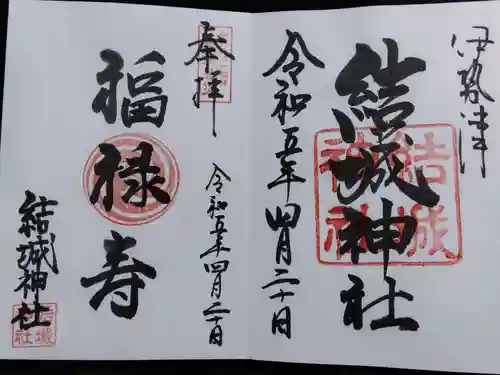 伊勢津
結城神社
結城神社
令和五年四月二十日
奉拝
令和五年四月二十日
福禄寿
結城神社
結城社